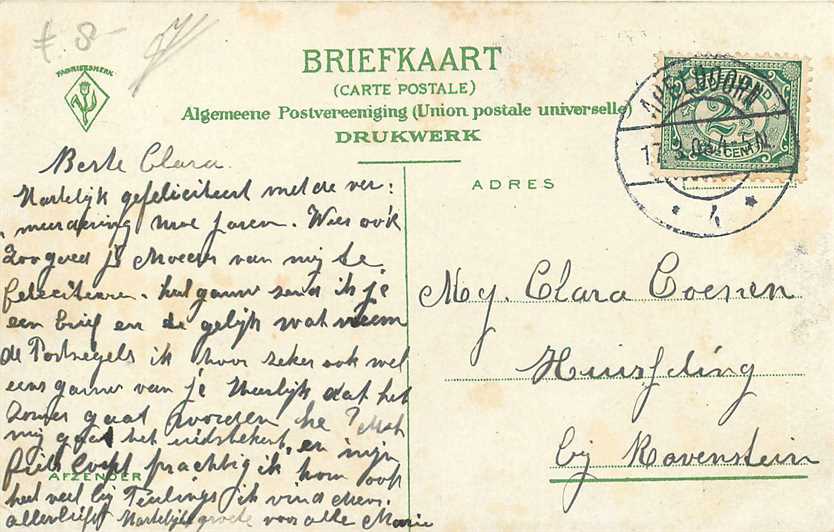 f. 8-
FABRIEKSMERK
BRIEFKAART
(CARTE POSTALE)
Algemeene Postvereeniging (Union postale universelle)
DRUKWERK
APELDOORN
4-5 N.
4
2½
CENT
ADRES
Beste Clara.
Hartelijk gefeliciteert met de ver:
meerdering moe jaren. Wees ook
zoo goed je Moeder van mij te
feliciteeren. heel gauw zend ik je
een brief en de gelijk wat vreem
de Postzegels ik hoor zeker ook wel
eens gauw van je Heerlijk dat het
zomer gaat worden he? Met
mij gaat het uidstekent, en mijn
fiets loopt prachtig ik kom ook
heel veel bij Teulings ik vind
allerliefst Hartelijke groete voor alle Marie
AFZENDER
Mej. Clara Coenen
Huisseling
bij Ravenstein